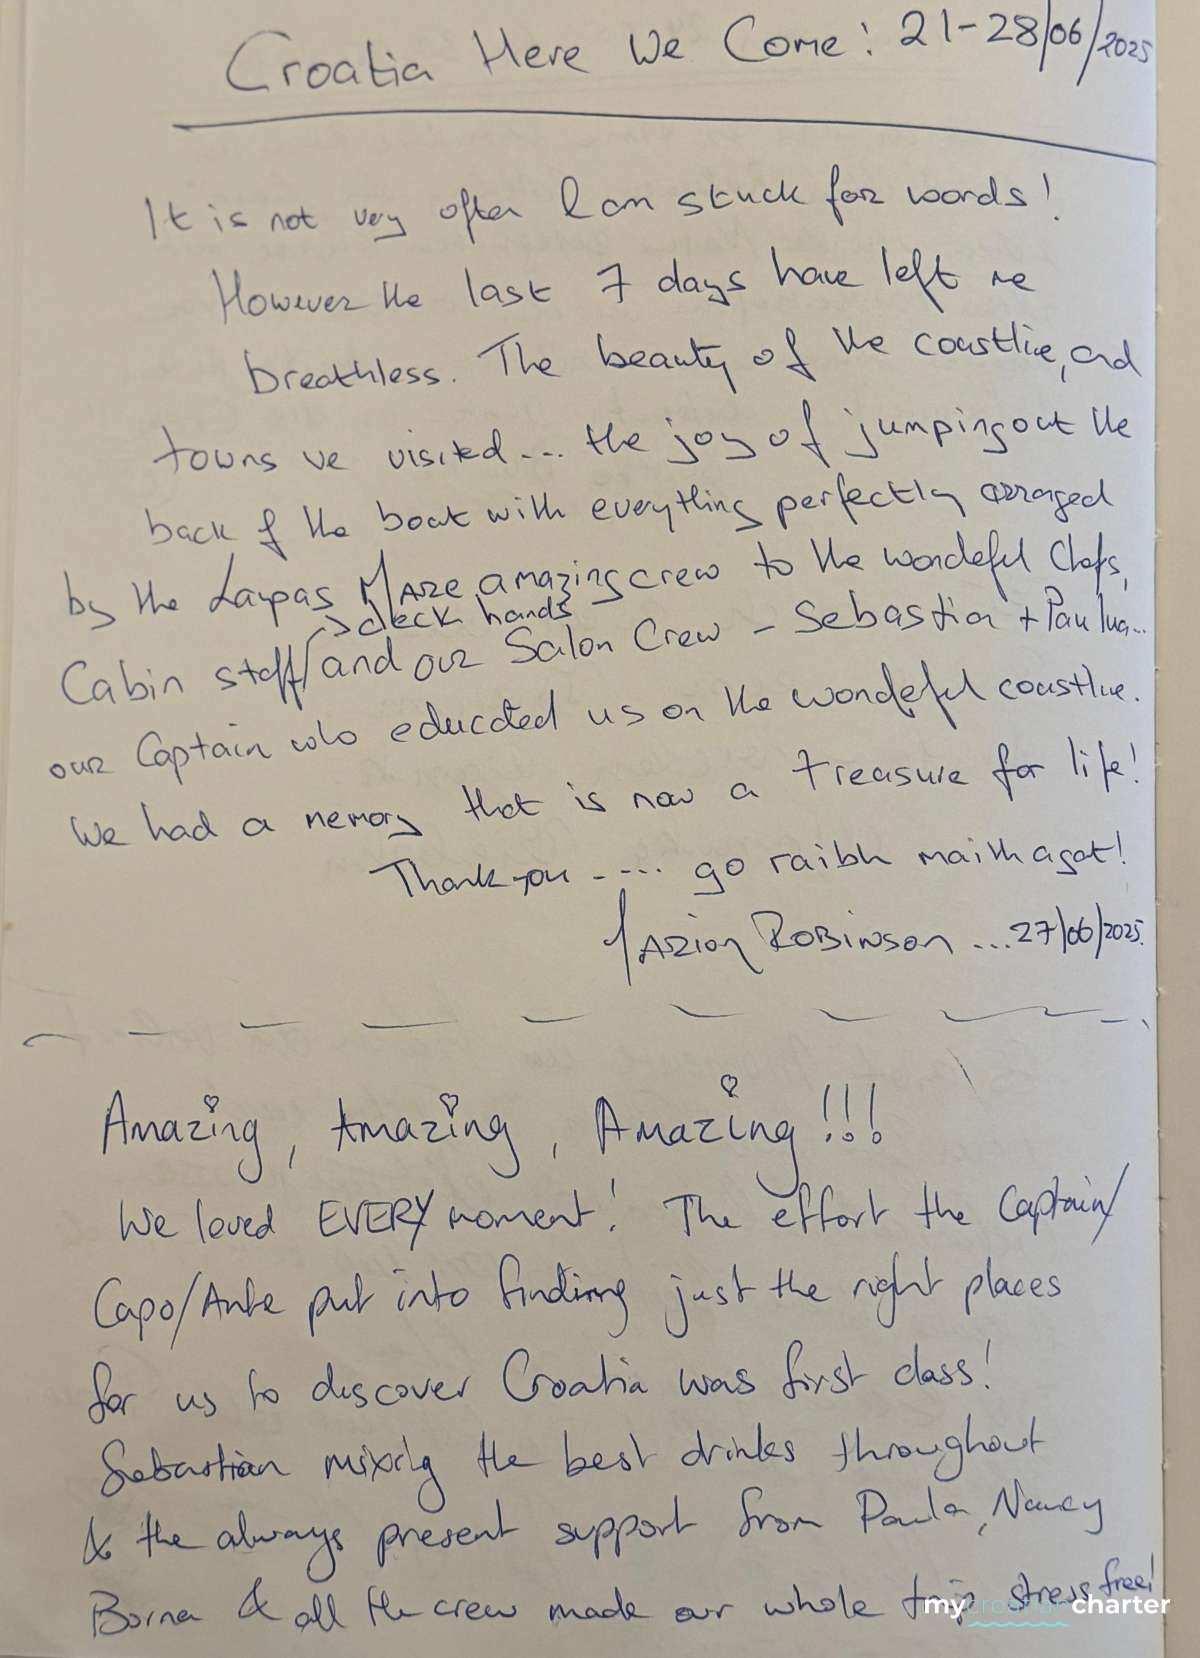 Croatia Here We Come: 21-28/06/2025
It is not very often I am stuck for words!
However the last 7 days have left me
breathless. The beauty of the coastline, and
towns we visited... the joy of jumping out the
back of the boat with everything perfectly arranged
by the Mare amazing crew to the wonderful Chefs,
deck hands
Cabin staff/and our Salon Crew - Sebastian +
our Captain who educated us on the wonderful coastline.
We had a memory that is now a treasure for life!
Thank you .... go raibh maith agat!
Marion Robinson ... 27/06/2025.
Amazing, Amazing, Amazing!!!
We loved EVERY moment! The effort the Captain/
Capo/Ante put into finding just the right places
for us to discover Croatia was first class!
Sebastian mixing the best drinks throughout
& the always present support from Paula, Nancy
Borna & all the crew made our whole trip stress free!
mycroatiancharter